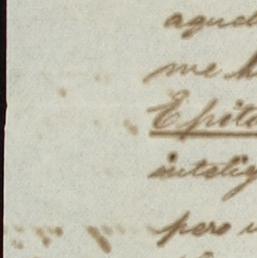 aqued
me h
Epíto
intelig
pero u